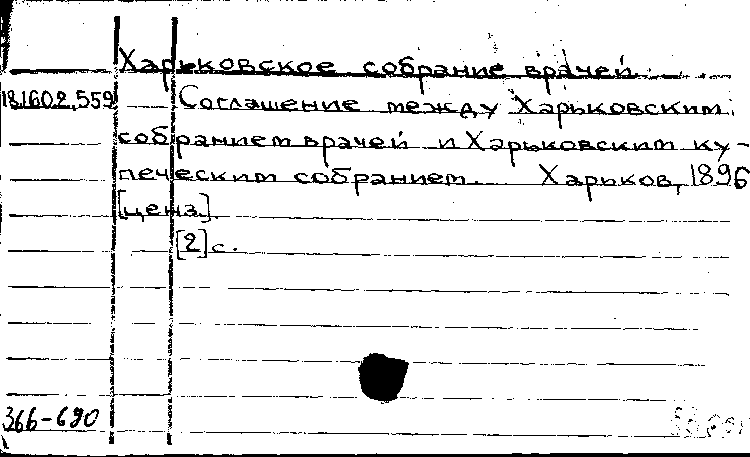 Харьковское собрание врачей.
18.1602.559 Соглашение между Харьковским
собранием врачей и Харьковским ку-
печеским собранием. Харьков, 1896
[ценз].
[2] с.
366-690